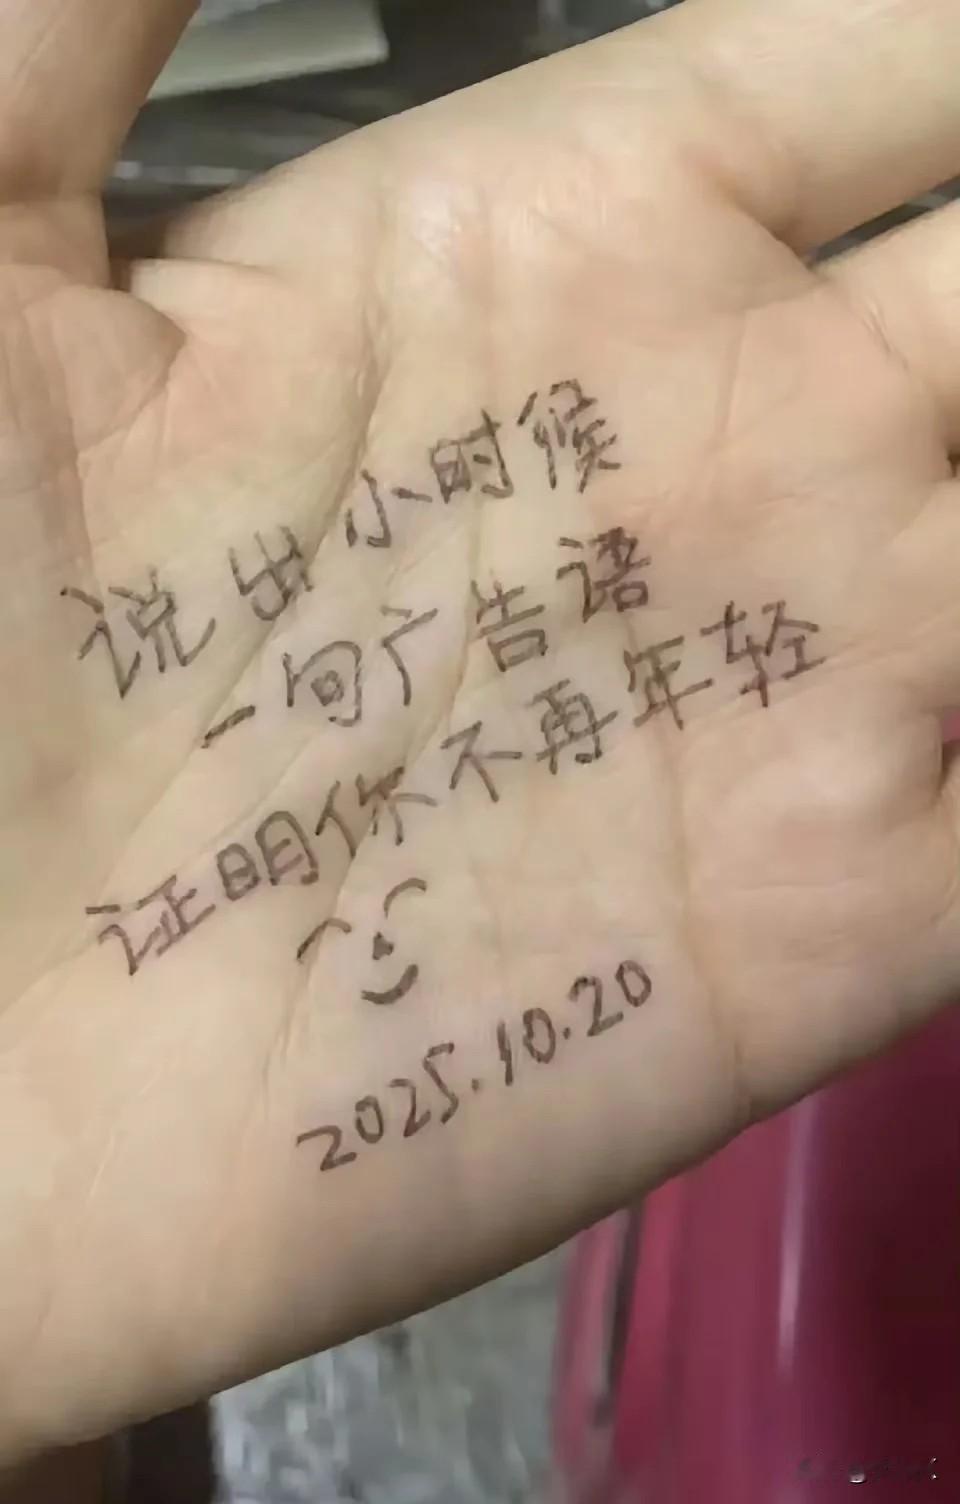 说出小时候
一句广告语
证明你不再年轻
2025.10.20